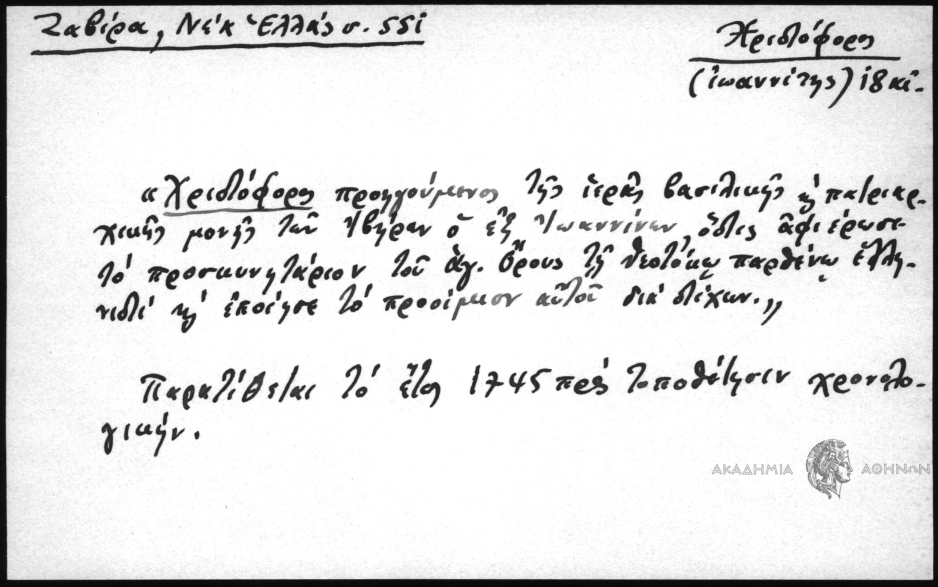 Ζαβίρα, Νέα Ἑλλάς σ. 551
Χριστόφορος
(ἰωαννίτης) 18 αἰ.
« Χριστόφορος προηγούμενος τῆς ἱερᾶς βασιλικῆς κ πατριαρ-
χικῆς μονῆς τῶν Ἰβήρων ὁ ἐξ Ἰωαννίνων, ὅστις ἀφιέρωσε
τὸ προσκυνητάριον τοῦ ἁγ. Ὄρους τῇ θεοτόκῳ παρθένῳ ἑλλη-
νιστί κ ἐποίησε τὸ προοίμιον αὐτοῦ διὰ στίχων. »
Παρατίθεται τὸ ἔτος 1745 πρὸς τοποθέτησιν χρονολο-
γικήν.
ΑΚΑΔΗΜΙΑ ΑΘΗΝΩΝ